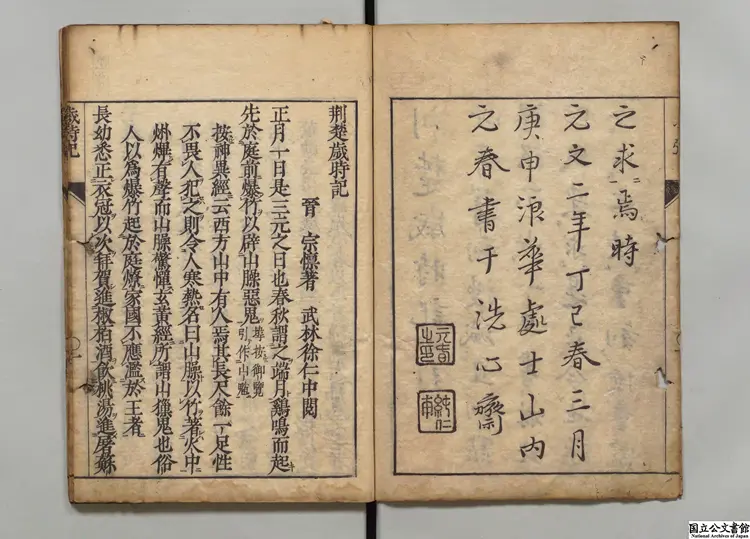 之求焉時
元文二年丁巳春三月
庚申浪華處士山内
元春書于洗心齋
元春之印
荊楚歲時記
晉 宗懍著 武林徐仁中閱
正月一日是三元之日也春秋謂之端月鷄鳴而起
先於庭前爆竹以辟山臊惡鬼
按御覽
引作山魈
按神異經云西方山中有人焉其長尺餘一足性
不畏人犯之則令人寒熱名曰山臊以竹著火中
烞熚有聲而山臊驚憚玄黃經所謂山𤢖鬼也俗
人以爲爆竹起於庭燎家國不應濫於王者
長幼悉正衣冠以次拜賀進椒柏酒飲桃湯進屠蘇
歲時記
国立公文書館
National Archives of Japan